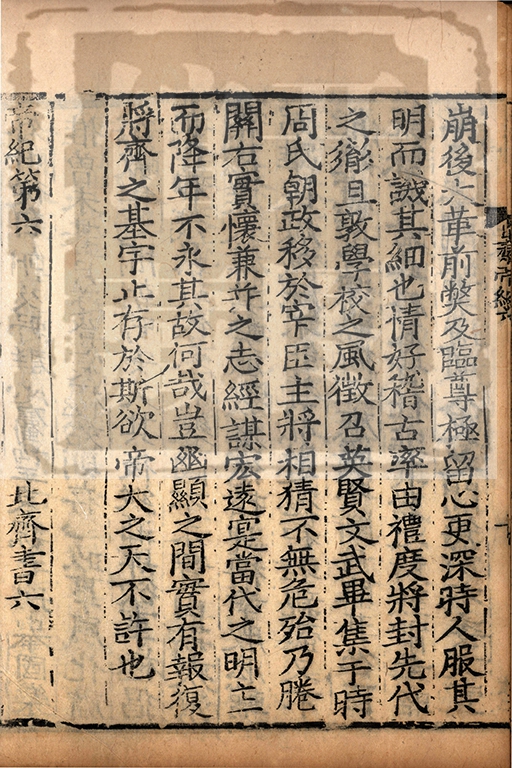 崩後大革前弊及臨尊極留心更深時人服其
明而譏其細也情好稽古率由禮度將封先代
之胤且敦學校之風徵召英賢文武畢集于時
周氏朝政移於宰臣主將相猜不無危殆乃睠
關右實懷兼并之志經謀宏遠寔當代之明主
而降年不永其故何哉豈幽顯之間實有報復
將齊之基宇止存於斯欲帝大之天不許也
帝紀第六 北齊書六